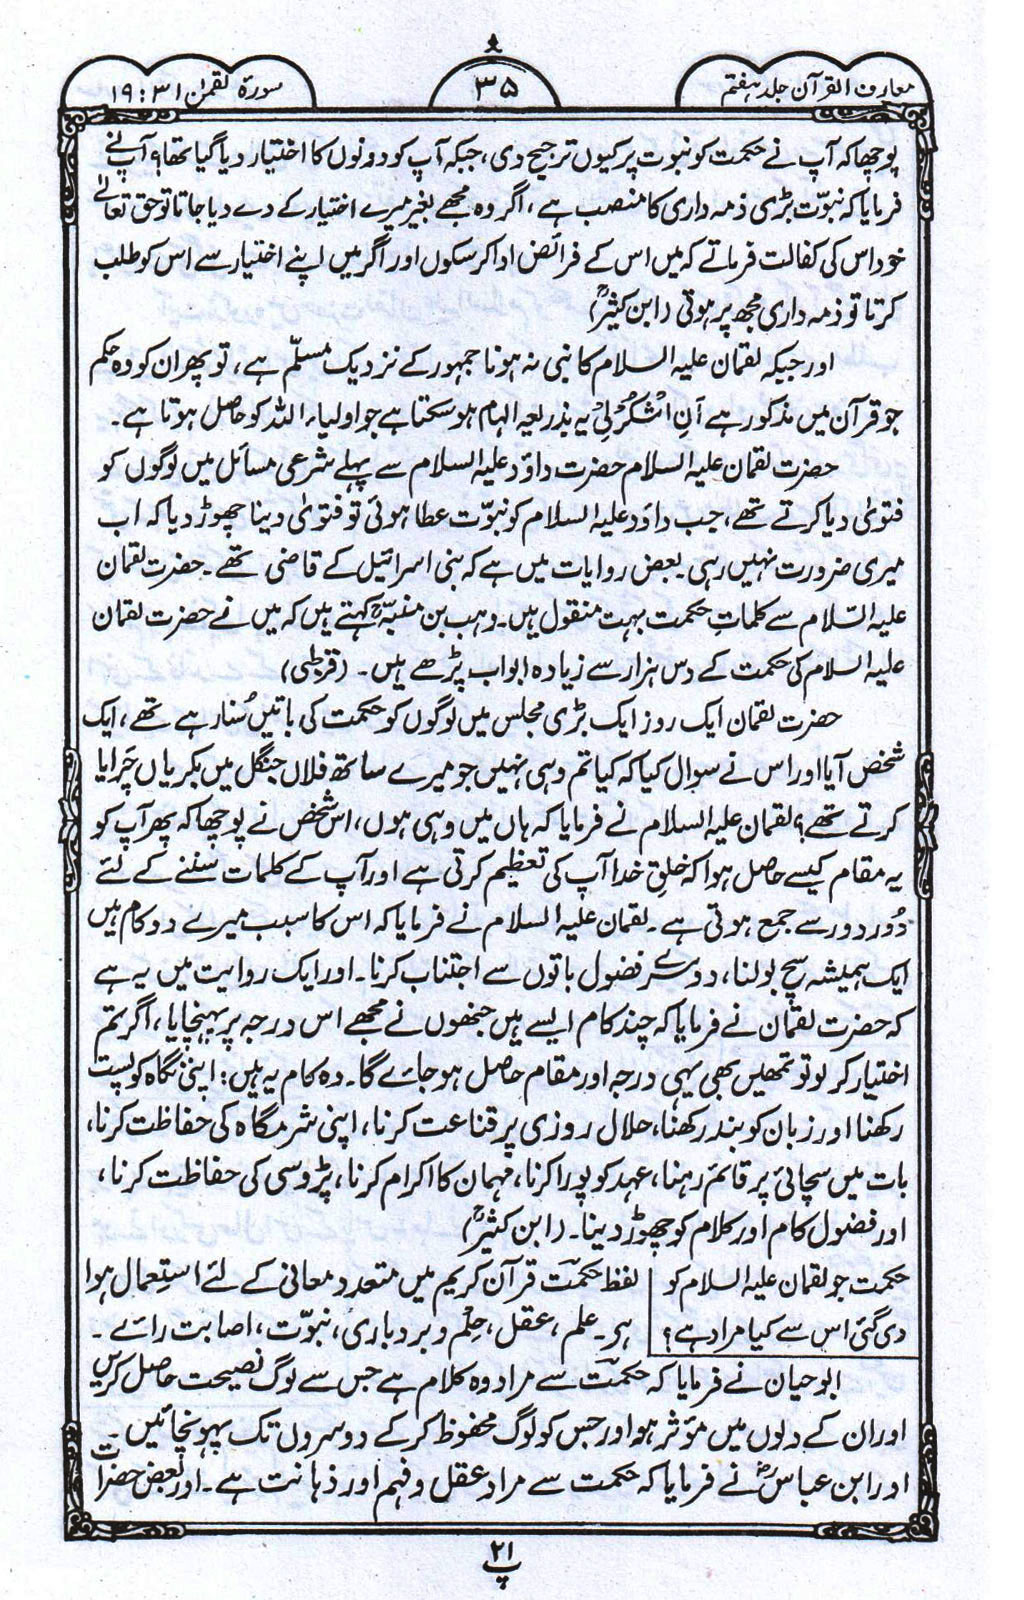 معارف القرآن جلد ہفتم
۳۵
سورۂ لقمٰن ۳۱ : ۱۹
پوچھا کہ آپ نے حکمت کو نبوت پر کیوں ترجیح دی، جبکہ آپ کو دونوں کا اختیار دیا گیا تھا؟ آپ نے
فرمایا کہ نبوّت بڑی ذمہ داری کا منصب ہے، اگر وہ مجھے بغیر میرے اختیار کے دے دیا جاتا تو حق تعالےٰ
خود اس کی کفالت فرماتے کہ میں اس کے فرائض ادا کر سکوں اور اگر میں اپنے اختیار سے اس کو طلب
کرتا تو ذمہ داری مجھ پر ہوتی (ابن کثیرؒ)
اور جبکہ لقمان علیہ السلام کا نبی نہ ہونا جمہور کے نزدیک مسلّم ہے، تو پھر ان کو وہ حکم
جو قرآن میں مذکور ہے اَنِ اشْکُرْ لِیْ یہ بذریعہ الہام ہو سکتا ہے جو اولیاء اللہ کو حاصل ہوتا ہے۔
حضرت لقمان علیہ السلام حضرت داؤد علیہ السلام سے پہلے شرعی مسائل میں لوگوں کو
فتویٰ دیا کرتے تھے، جب داؤد علیہ السلام کو نبوّت عطا ہوئی تو فتویٰ دینا چھوڑ دیا کہ اب
میری ضرورت نہیں رہی۔ بعض روایات میں ہے کہ بنی اسرائیل کے قاضی تھے۔ حضرت لقمان
علیہ السّلام سے کلماتِ حکمت بہت منقول ہیں۔ وہب بن منبہؒ کہتے ہیں کہ میں نے حضرت لقمان
علیہ السلام کی حکمت کے دس ہزار سے زیادہ ابواب پڑھے ہیں۔ (قرطبی)
حضرت لقمان ایک روز ایک بڑی مجلس میں لوگوں کو حکمت کی باتیں سُنا رہے تھے، ایک
شخص آیا اور اس نے سوال کیا کہ کیا تم وہی نہیں جو میرے ساتھ فلاں جنگل میں بکریاں چَرایا
کرتے تھے؟ لقمان علیہ السلام نے فرمایا کہ ہاں میں وہی ہوں، اس شخص نے پوچھا کہ پھر آپ کو
یہ مقام کیسے حاصل ہوا کہ خلقِ خدا آپ کی تعظیم کرتی ہے اور آپ کے کلمات سننے کے لئے
دُور دور سے جمع ہوتی ہے۔ لقمان علیہ السلام نے فرمایا کہ اس کا سبب میرے دو کام ہیں
ایک ہمیشہ سچ بولنا، دوسرے فضول باتوں سے اجتناب کرنا۔ اور ایک روایت میں یہ ہے
کہ حضرت لقمان نے فرمایا کہ چند کام ایسے ہیں جنھوں نے مجھے اس درجہ پر پہنچایا، اگر تم
اختیار کر لو تو تمھیں بھی یہی درجہ اور مقام حاصل ہو جائے گا۔ وہ کام یہ ہیں: اپنی نگاہ کو پست
رکھنا اور زبان کو بند رکھنا، حلال روزی پر قناعت کرنا، اپنی شرمگاہ کی حفاظت کرنا،
بات میں سچائی پر قائم رہنا، عہد کو پورا کرنا، مہمان کا اکرام کرنا، پڑوسی کی حفاظت کرنا،
اور فضول کام اور کلام کو چھوڑ دینا۔ (ابن کثیرؒ)
حکمت جو لقمان علیہ السلام کو
دی گئی اس سے کیا مراد ہے؟
لفظ حکمت قرآن کریم میں متعدد معانی کے لئے استعمال ہوا
ہے۔ علم، عقل، حِلْم و بردباری، نبوّت، اصابت رائے۔
ابو حیان نے فرمایا کہ حکمت سے مراد وہ کلام ہے جس سے لوگ نصیحت حاصل کریں
اور ان کے دلوں میں مؤثر ہو اور جس کو لوگ محفوظ کر کے دوسروں تک پہونچائیں۔
اور ابن عباسؓ نے فرمایا کہ حکمت سے مراد عقل و فہم اور ذہانت ہے۔ اور بعض حضرات
۲۱
پ